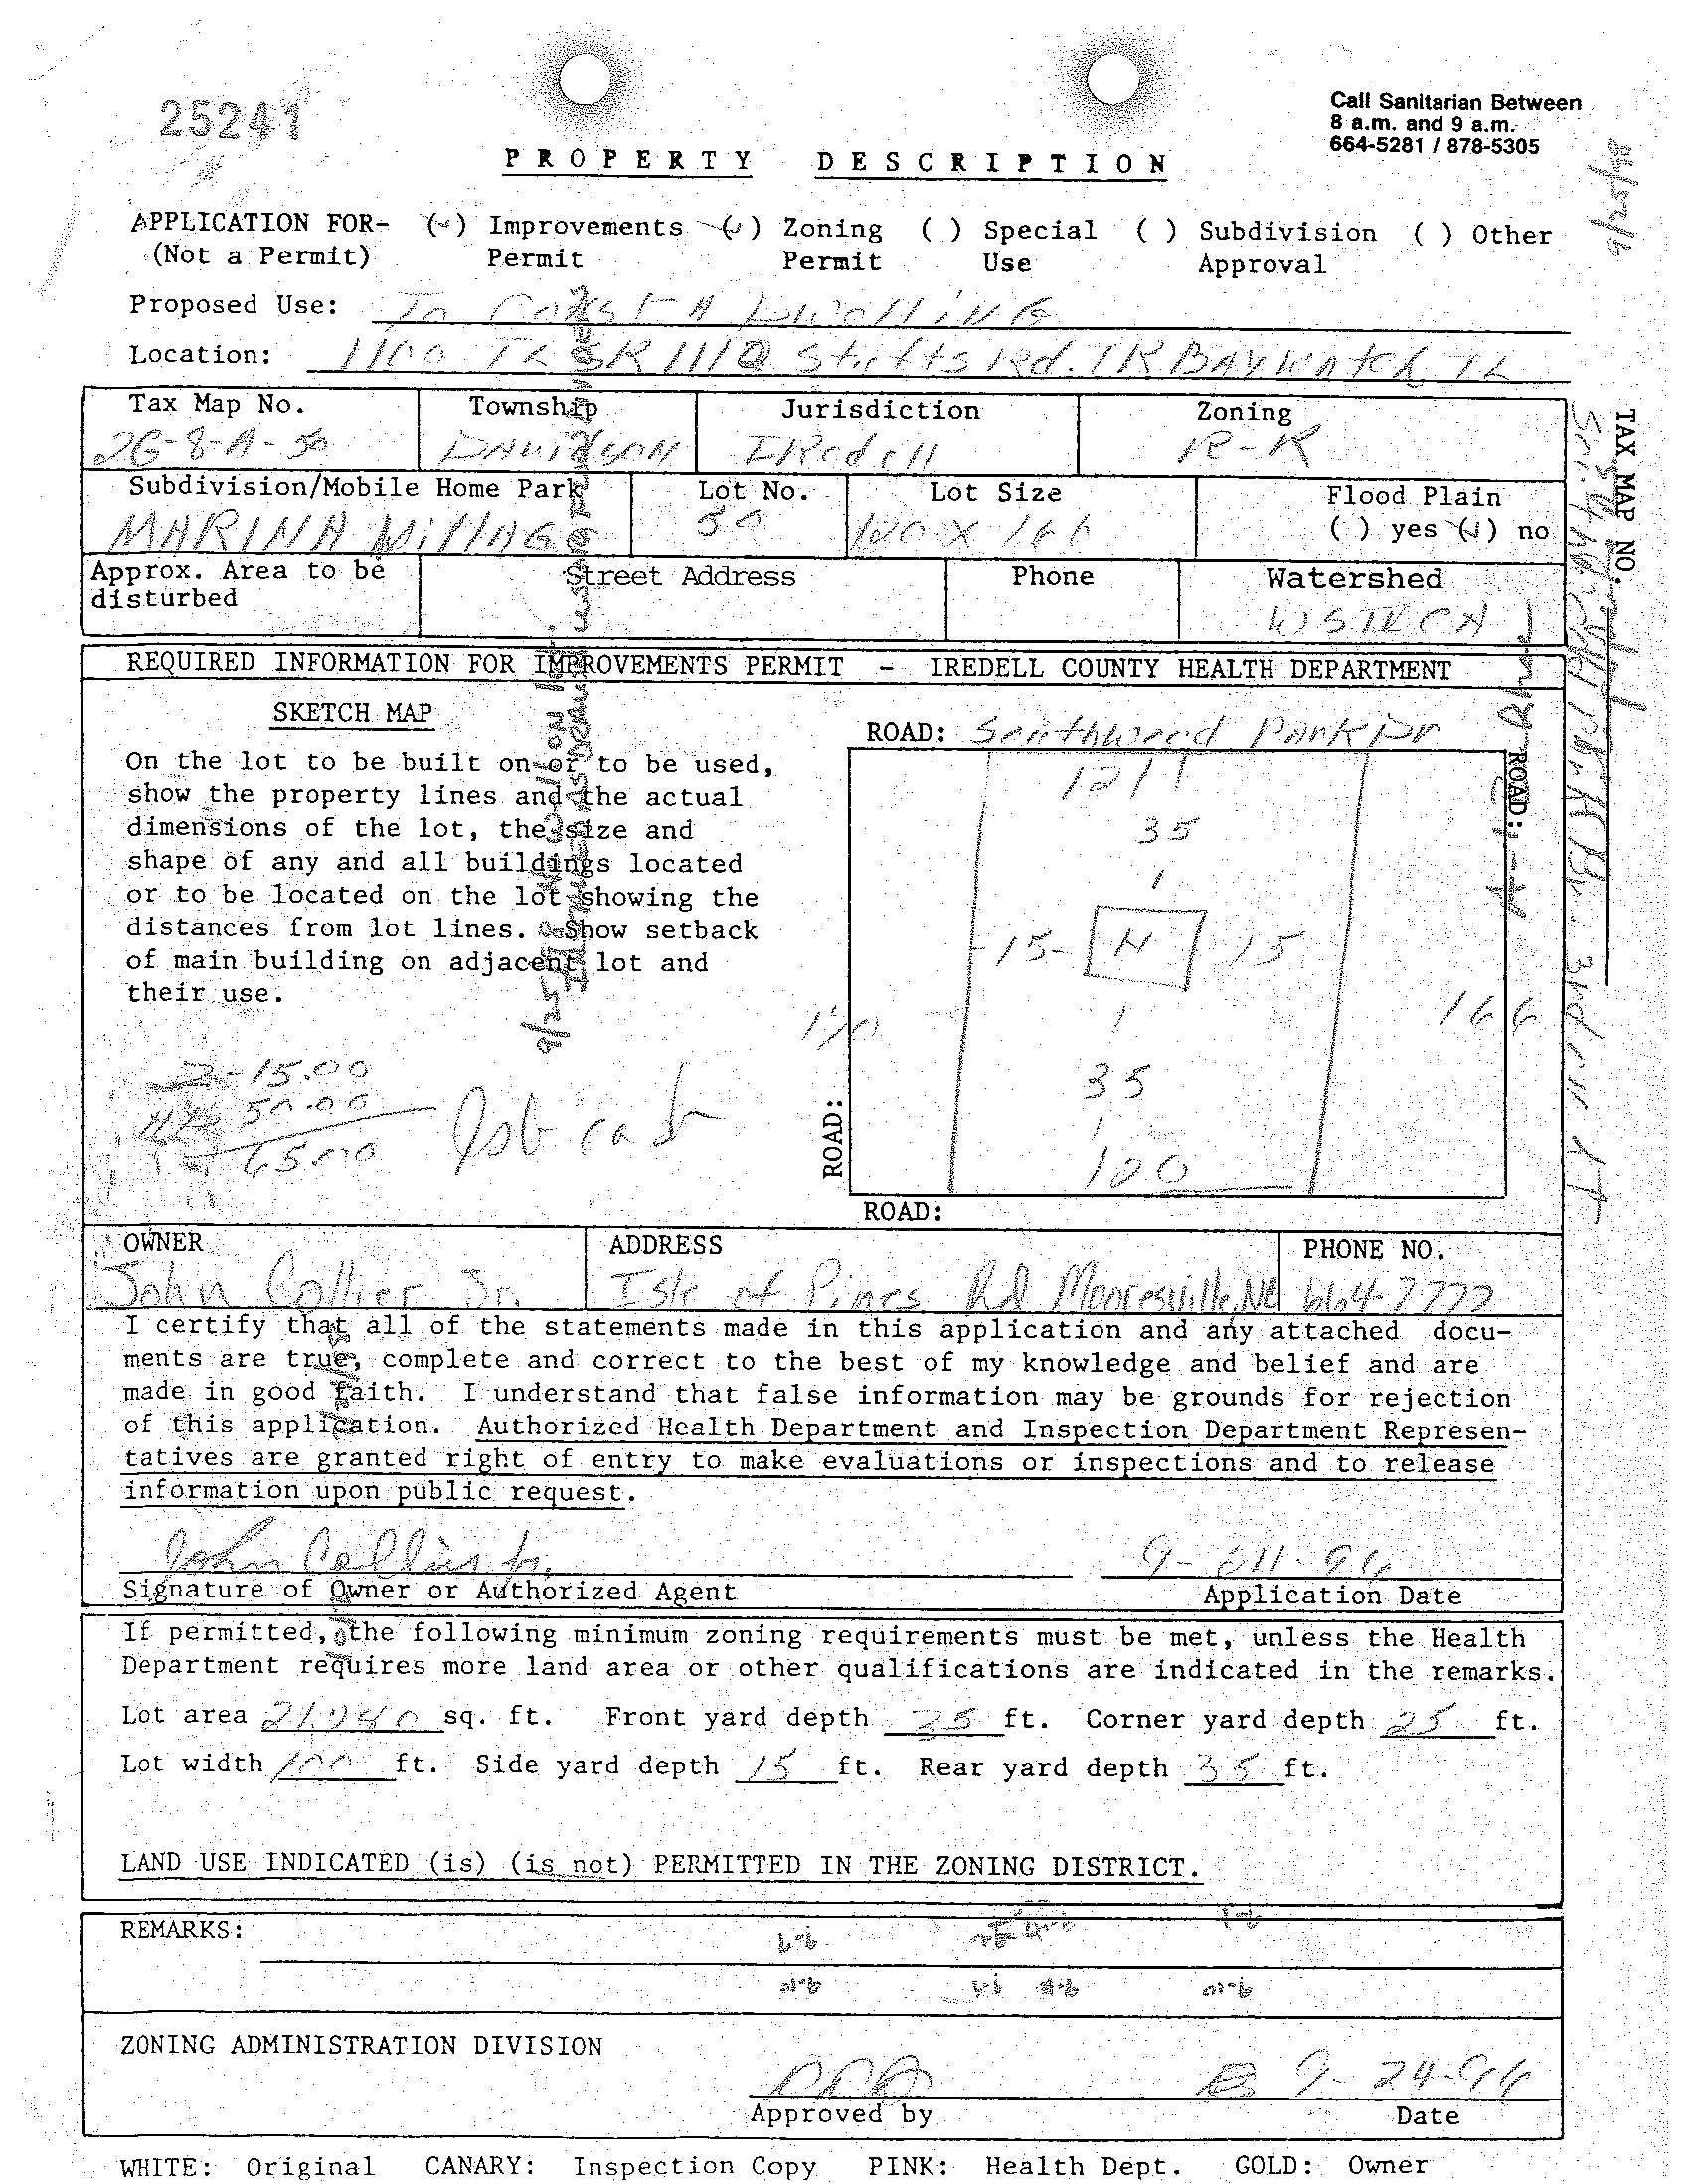 25241
Call Sanitarian Between
8 a.m. and 9 a.m.
664-5281 / 878-5305
PROPERTY DESCRIPTION
APPLICATION FOR- (✓) Improvements (✓) Zoning ( ) Special ( ) Subdivision ( ) Other
(Not a Permit) Permit Permit Use Approval
Proposed Use: To Const A Dwelling
Location: 1100 TL SR 1110 Stutts Rd. TR BAYWATCH TL
Tax Map No. Township Jurisdiction Zoning
2G-8-A-50 Davidson IRedell R-R
Subdivision/Mobile Home Park Lot No. Lot Size Flood Plain
MARINA VillAGE 50 120 X 166 ( ) yes (✓) no
Approx. Area to be Street Address Phone Watershed
disturbed
WSIV CA
TAX MAP NO.
REQUIRED INFORMATION FOR IMPROVEMENTS PERMIT - IREDELL COUNTY HEALTH DEPARTMENT
SKETCH MAP
ROAD: Southwood Park Dr
On the lot to be built on or to be used,
show the property lines and the actual
dimensions of the lot, the size and
shape of any and all buildings located
or to be located on the lot showing the
distances from lot lines. Show setback
of main building on adjacent lot and
their use.
121
35
-15- H 15
170 166
35
120
ROAD:
ROAD:
ROAD:
15.00
50.00
65.00
cash
OWNER ADDRESS PHONE NO.
John Collier Jr. Isle of Pines Rd Mooresville, NC 664-7777
I certify that all of the statements made in this application and any attached docu-
ments are true, complete and correct to the best of my knowledge and belief and are
made in good faith. I understand that false information may be grounds for rejection
of this application. Authorized Health Department and Inspection Department Represen-
tatives are granted right of entry to make evaluations or inspections and to release
information upon public request.
John Collier Jr.
Signature of Owner or Authorized Agent Application Date
If permitted, the following minimum zoning requirements must be met, unless the Health
Department requires more land area or other qualifications are indicated in the remarks.
Lot area sq. ft. Front yard depth 25 ft. Corner yard depth 25 ft.
Lot width 100 ft. Side yard depth 15 ft. Rear yard depth 35 ft.
LAND USE INDICATED (is) (is not) PERMITTED IN THE ZONING DISTRICT.
REMARKS:
ZONING ADMINISTRATION DIVISION
9-24-96
Approved by Date
WHITE: Original CANARY: Inspection Copy PINK: Health Dept. GOLD: Owner